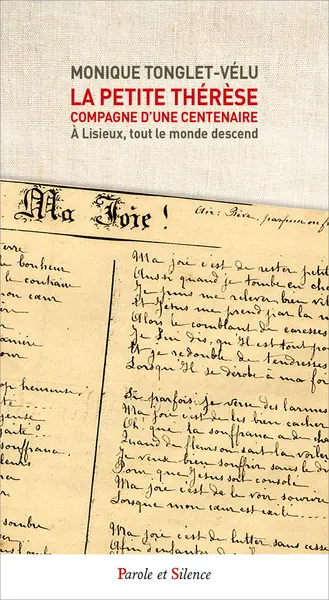 MONIQUE TONGLET-VÉLU
LA PETITE THÉRÈSE
COMPAGNE D'UNE CENTENAIRE
À Lisieux, tout le monde descend
Ma Joie !
Air: Rêve, parfum ou
le bonheur
le contraire
mon cœur
Ma joie c'est de rester petit
Aussi quand je tombe en che
Je puis me relever bien vit
Et Jésus me prend par la m
Alors le comblant de caresses
Je Lui dis, qu'Il est tout po
Et je redouble de tendresses
Lorsqu'Il se dérobe à ma fo
Si parfois je verse des larmes
Ma joie c'est de les bien cacher
Oh! que la souffrance a de cha
Quand de fleurs on sait la voiler
Je veux bien souffrir sans le di
Pour que Jésus soit consolé
Ma joie c'est de le voir sourire
Lorsque mon cœur est exilé
Ma joie c'est de lutter sans cesse
Afin d'enfanter
souffrance
fleurs
sombre
Parole et Silence